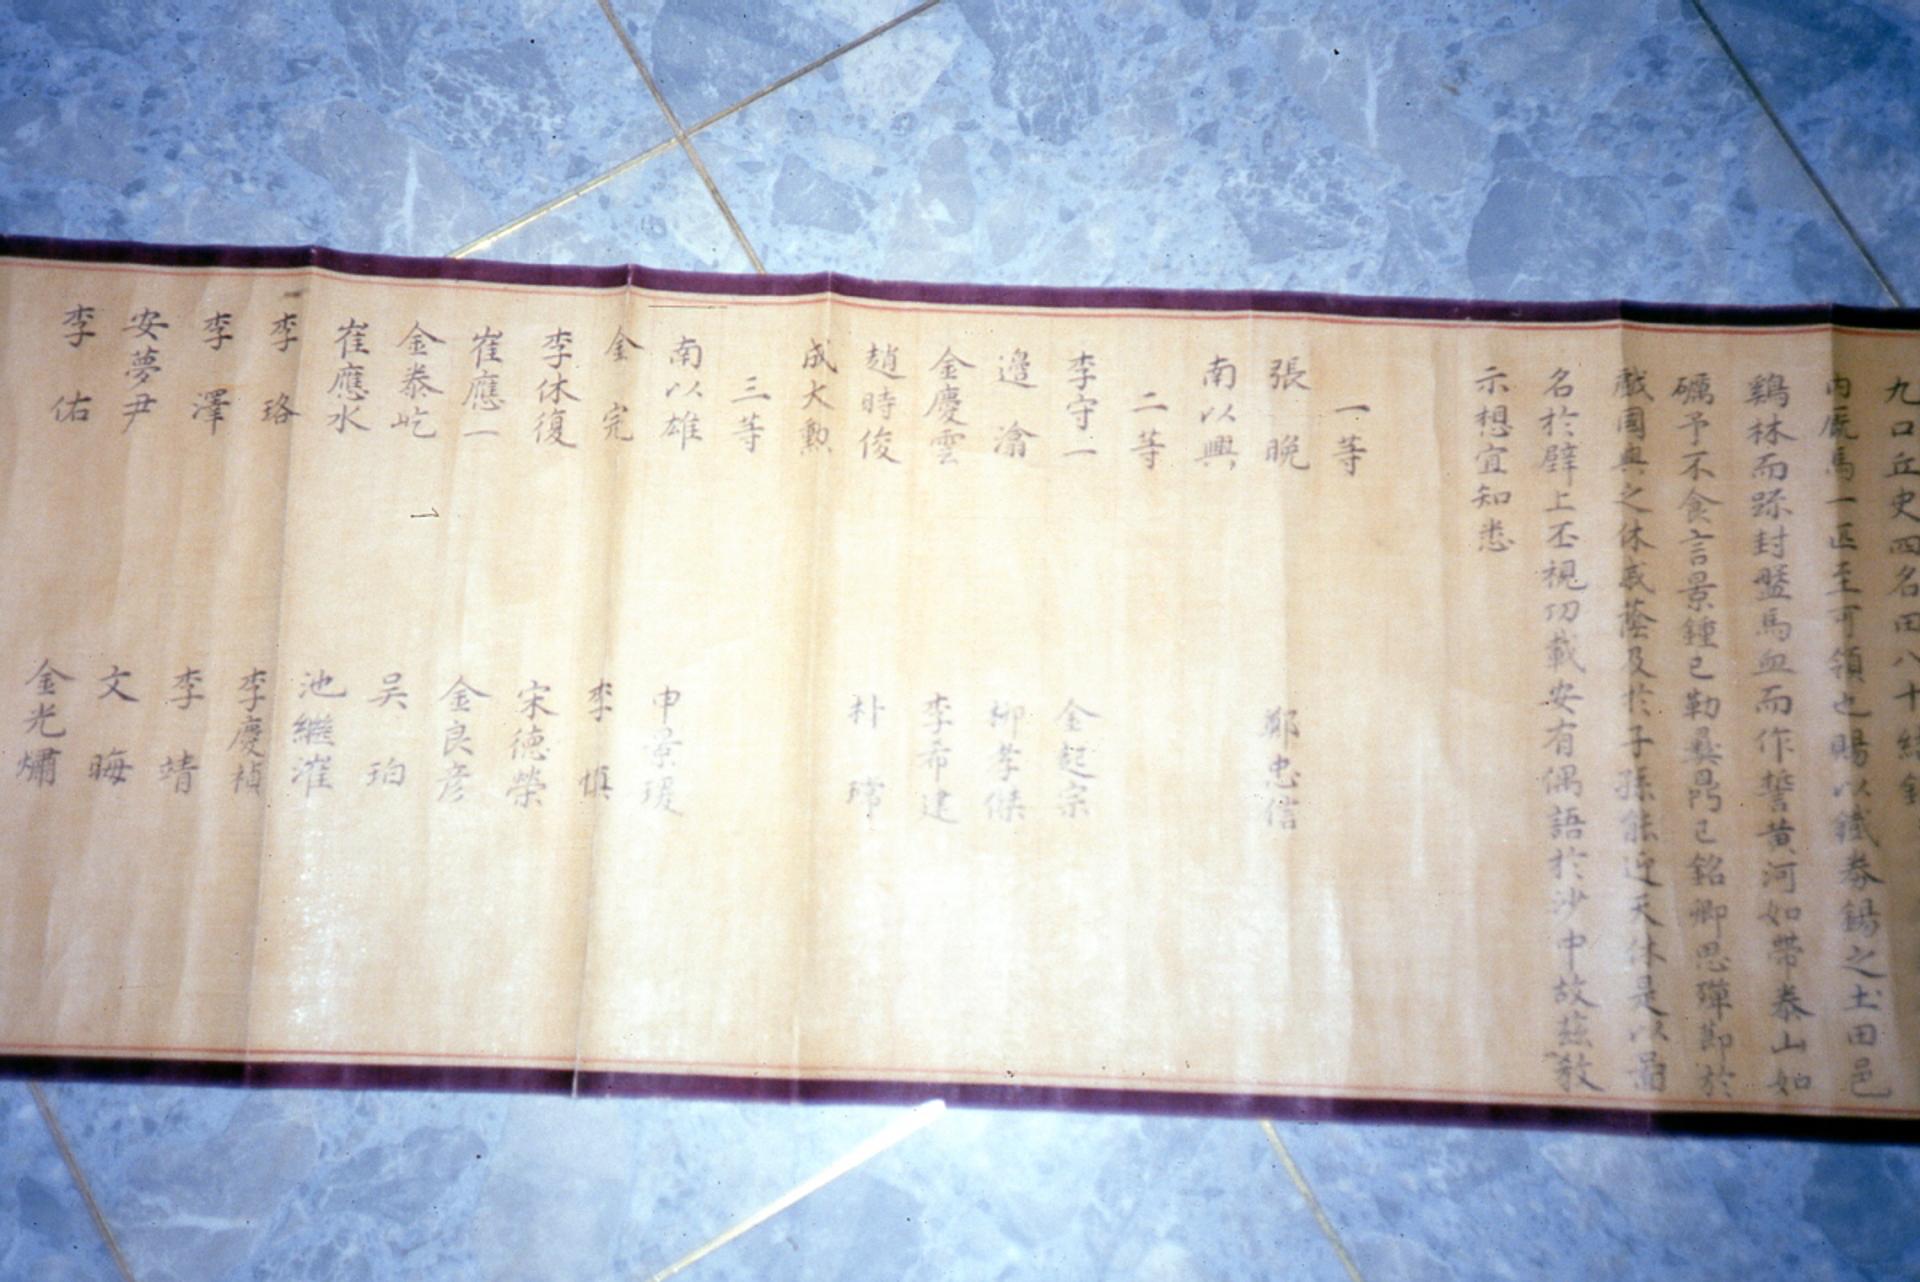 九口丘史四名田八十結銀
內廐馬一匹至可領也賜以鐵券錫之土田邑
鷄林而疏封盤馬血而作誓黃河如帶泰山如
礪予不食言景鍾已勒彛鼎已銘卿思殫節於
戲國與之休戚蔭及於子孫能近天休是以圖
名於壁上丕視功載安有偶語於沙中故玆敎
示想宜知悉
一等
張晩 鄭忠信
南以興
二等
李守一 金起宗
邊潝 柳孝傑
金慶雲 李希建
趙時俊 朴瑺
成大勳
三等
南以雄 申景瑗
金完 李愼
李休復 宋德榮
崔應一 金良彦
金泰屹 吳珀
崔應水 池繼漼
李珞 李慶禎
李澤 李靖
安夢尹 文晦
李佑 金光熽